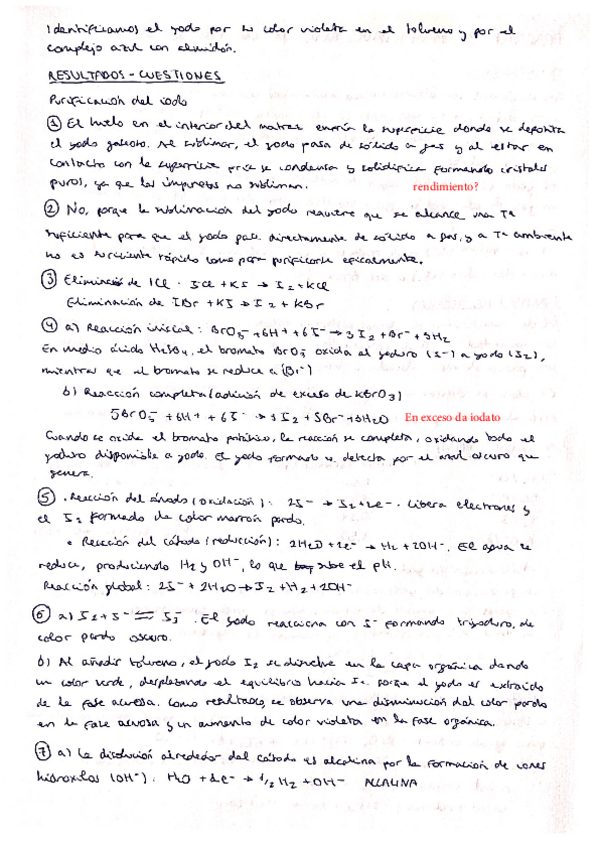 Identificamos el yodo por su color violeta en el tolueno y por el
complejo azul con almidón.
RESULTADOS - CUESTIONES
Purificación del iodo
① El hielo en el interior del matraz enfría la superficie donde se deposita
el yodo gaseoso. Al sublimar, el yodo pasa de sólido a gas y al estar en
contacto con la superficie fría se condensa y solidifica formando cristales
puros, ya que las impurezas no subliman.
rendimiento?
② No, porque la sublimación del yodo requiere que se alcance una Tª
suficiente para que el yodo pase directamente de sólido a gas, y a Tª ambiente
no es suficiente rápido como para purificarse eficazmente.
③ Eliminación de ICl · ICl + KI → I2 + KCl
Eliminación de IBr + KI → I2 + KBr
④ a) Reacción inicial: BrO3- + 6H+ + 6I- → 3I2 + Br- + 3H2
En medio ácido H2SO4, el bromato BrO3- oxida al yoduro (I-) a yodo (I2),
mientras que el bromato se reduce a (Br-)
b) Reacción completa (adición de exceso de KBrO3)
5BrO3- + 6H+ + 6I- → 3I2 + 5Br- + 3H2O
En exceso da iodato
Cuando se oxida el bromato potásico, la reacción se completa, oxidando todo el
yoduro disponible a yodo. El yodo formado se detecta por el azul oscuro que
genera.
⑤ · Reacción del ánodo (oxidación): 2I- → I2 + 2e- · Libera electrones y
el I2 formado de color marrón pardo.
• Reacción del cátodo (reducción): 2H2O + 2e- → H2 + 2OH-. El agua se
reduce, produciendo H2 y OH-, lo que sube el pH.
Reacción global: 2I- + 2H2O → I2 + H2 + 2OH-
⑥ a) I2 + I- ⇌ I3- . El yodo reacciona con I- formando triyoduro, de
color pardo oscuro.
b) Al añadir tolueno, el yodo I2 se disuelve en la capa orgánica dando
un color verde, desplazando el equilibrio hacia I2 porque el yodo es extraído
de la fase acuosa. Como resultado, se observa una disminución del color pardo
en la fase acuosa y un aumento de color violeta en la fase orgánica.
⑦ a) La disolución alrededor del cátodo es alcalina por la formación de iones
hidroxilos (OH-): H2O + 2e- → 1/2 H2 + OH- ALCALINA